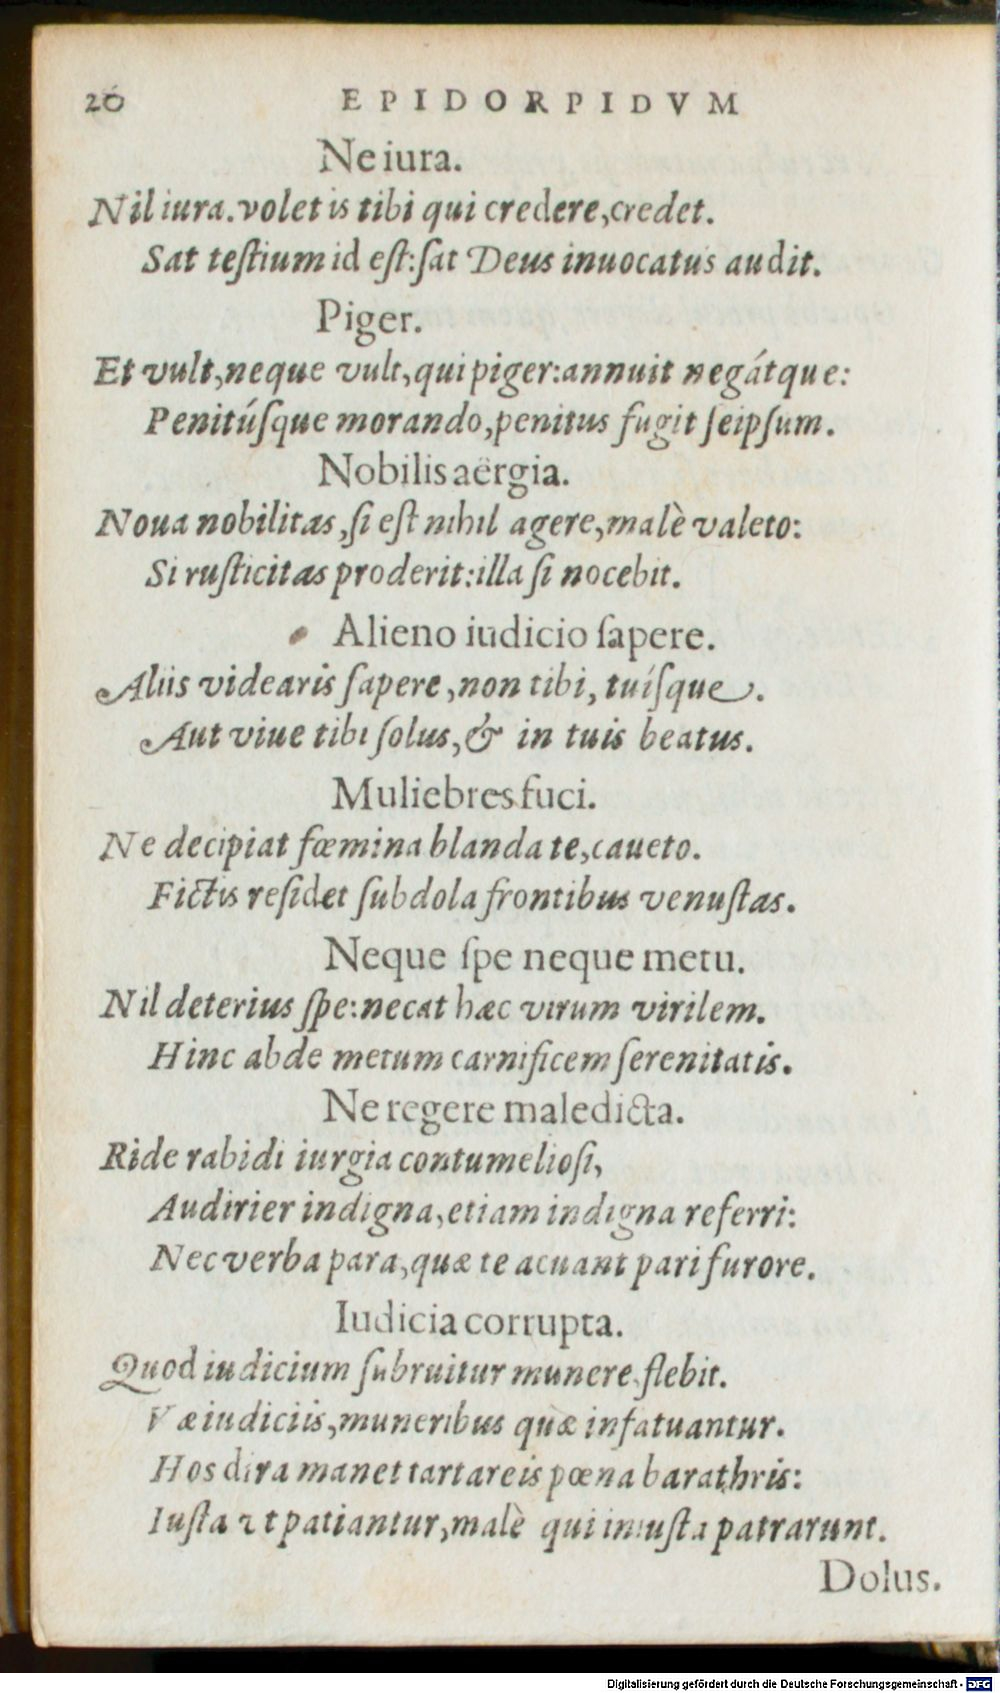 20 EPIDORPIDVM
Ne iura.
Nil iura. volet is tibi qui credere, credet.
Sat teſtium id eſt: ſat Deus inuocatus audit.
Piger.
Et vult, neque vult, qui piger: annuit negátque:
Penitúſque morando, penitus fugit ſeipſum.
Nobilis aërgia.
Noua nobilitas, ſi eſt nihil agere, malè valeto:
Si ruſticitas proderit: illa ſi nocebit.
Alieno iudicio ſapere.
Aliis videaris ſapere, non tibi, tuíſque.
Aut viue tibi ſolus, & in tuis beatus.
Muliebres fuci.
Ne decipiat fœmina blanda te, caueto.
Fictis reſidet ſubdola frontibus venuſtas.
Neque ſpe neque metu.
Nil deterius ſpe: necat hæc virum virilem.
Hinc abde metum carnificem ſerenitatis.
Ne regere maledicta.
Ride rabidi iurgia contumelioſi,
Audirier indigna, etiam indigna referri:
Nec verba para, quæ te acuant pari furore.
Iudicia corrupta.
Quod iudicium ſubruitur munere, flebit.
Væ iudiciis, muneribus quæ infatuantur.
Hos dira manet tartareis pœna barathris:
Iuſta vt patiantur, malè qui iniuſta patrarunt.
Dolus.
Digitalisierung gefördert durch die Deutsche Forschungsgemeinschaft - DFG